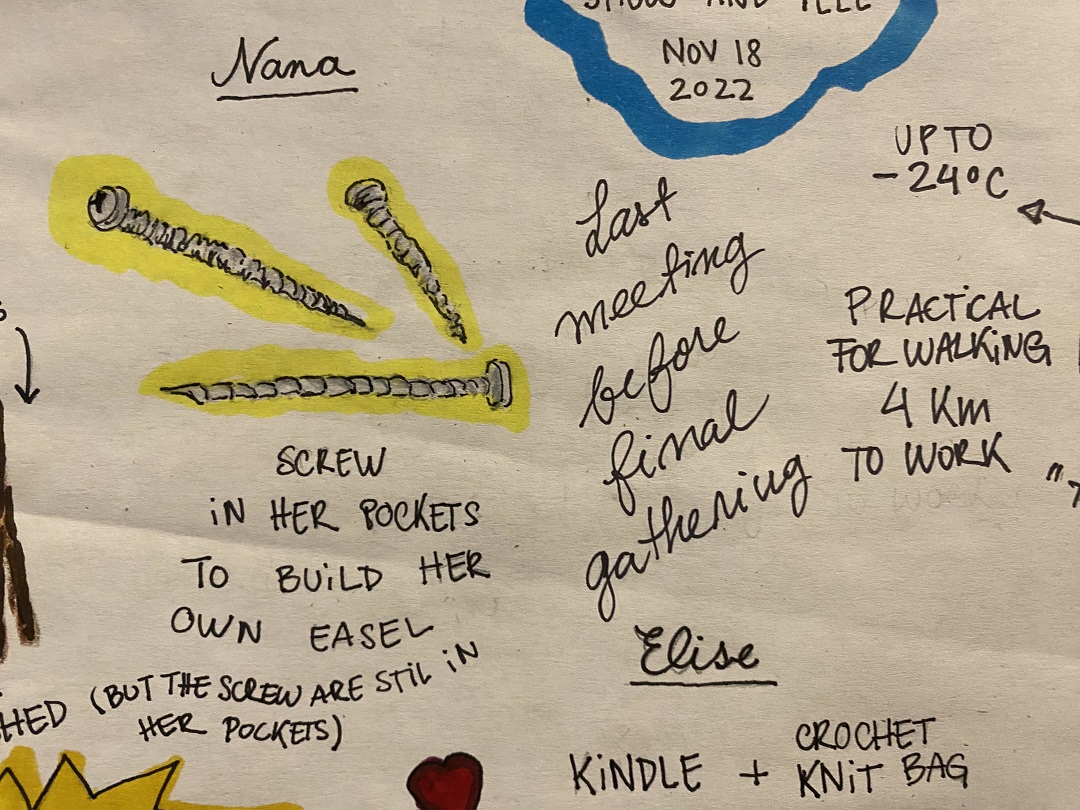 SHOW AND TELL
NOV 18
2022
Nana
UP TO
-24°C
Last
meeting
before
final
gathering
PRACTICAL
FOR WALKING
4 Km
TO WORK
SCREW
IN HER POCKETS
TO BUILD HER
OWN EASEL
(BUT THE SCREW ARE STIL IN
HER POCKETS)
HED
Elise
KINDLE + CROCHET
KNIT BAG